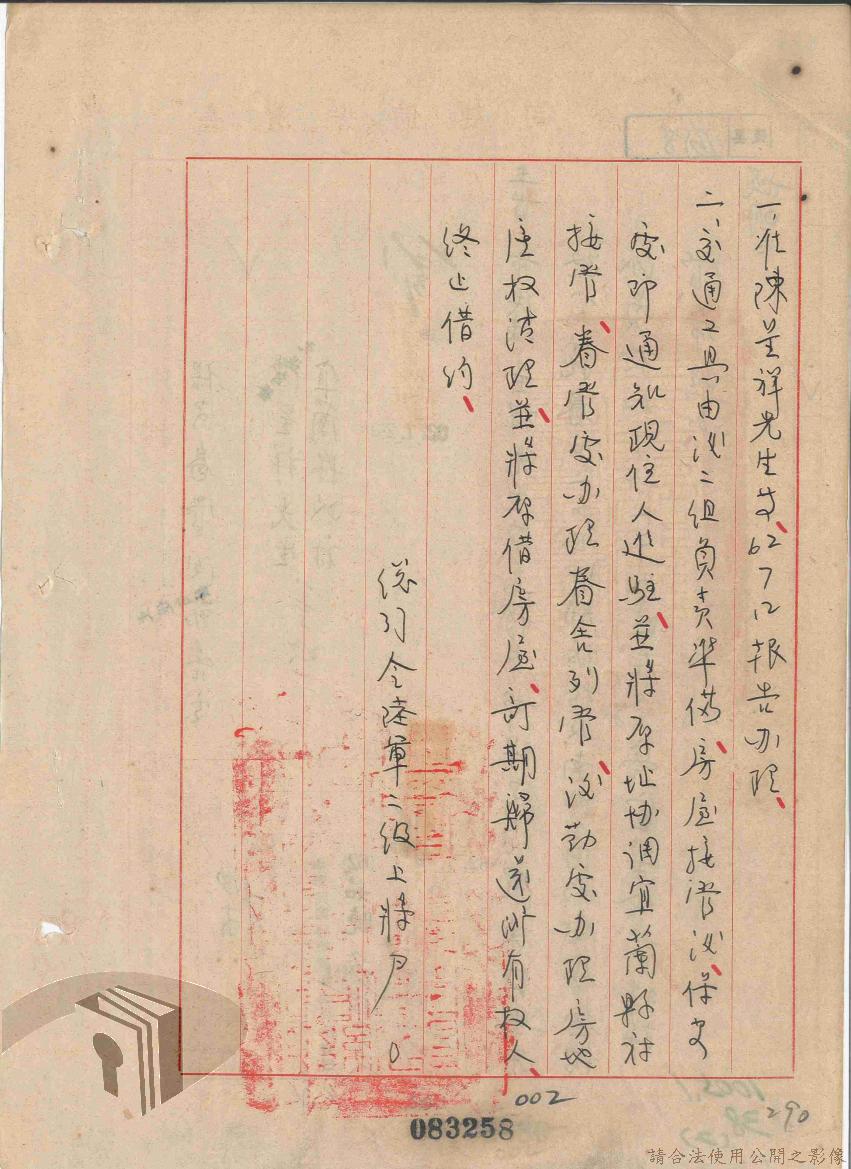 一、准陳呈祥先生等62712報告办理、
二、交通工具由汝二組負責準備、房屋接管汝、保安
處即通知現住人進駐、並將原址协調宜蘭縣村
接管、眷管處办理眷舍列管、汝勤處办理房地
产权清理、並將原借房屋、訂期歸還所有权人、
終止借約、
總司令陸軍二級上將尹○
002
290
083258
請合法使用公開之影像